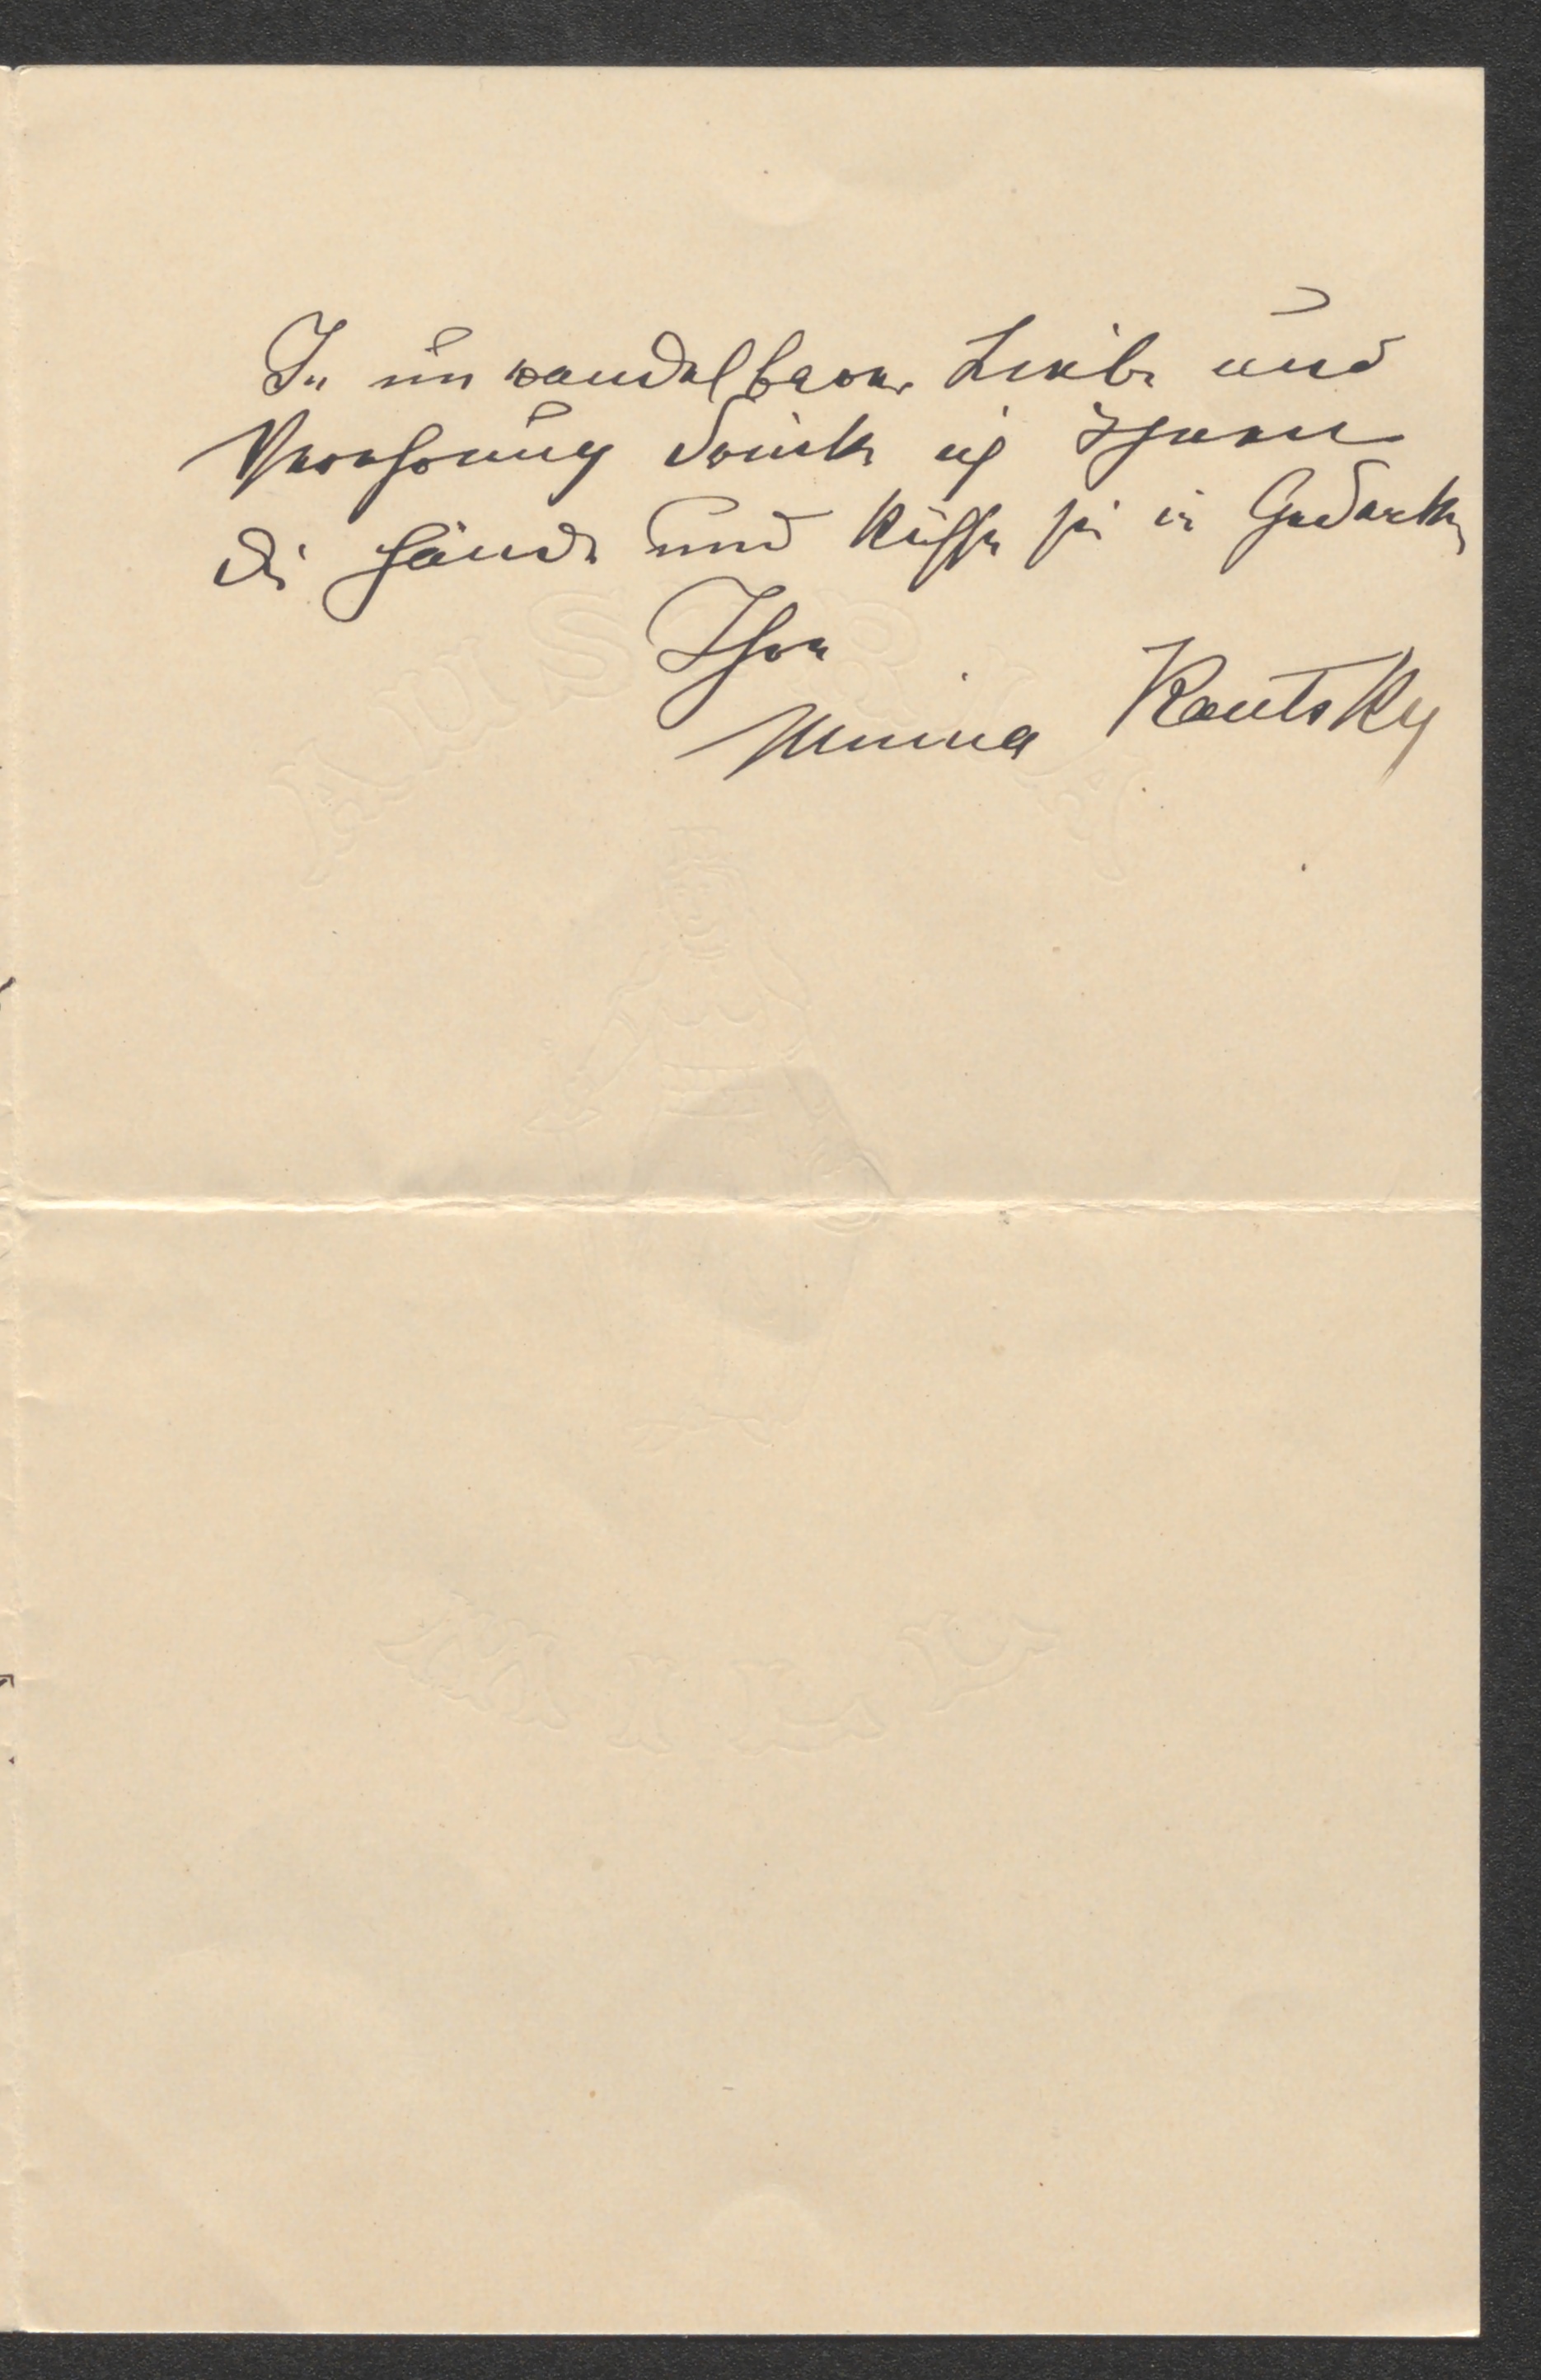 In unwandelbarer Liebe und
Verehrung drücke ich Ihnen
die Hände und küsse sie in Gedanken
Ihre
Minna Kautsky
AUSTRIA
MILL